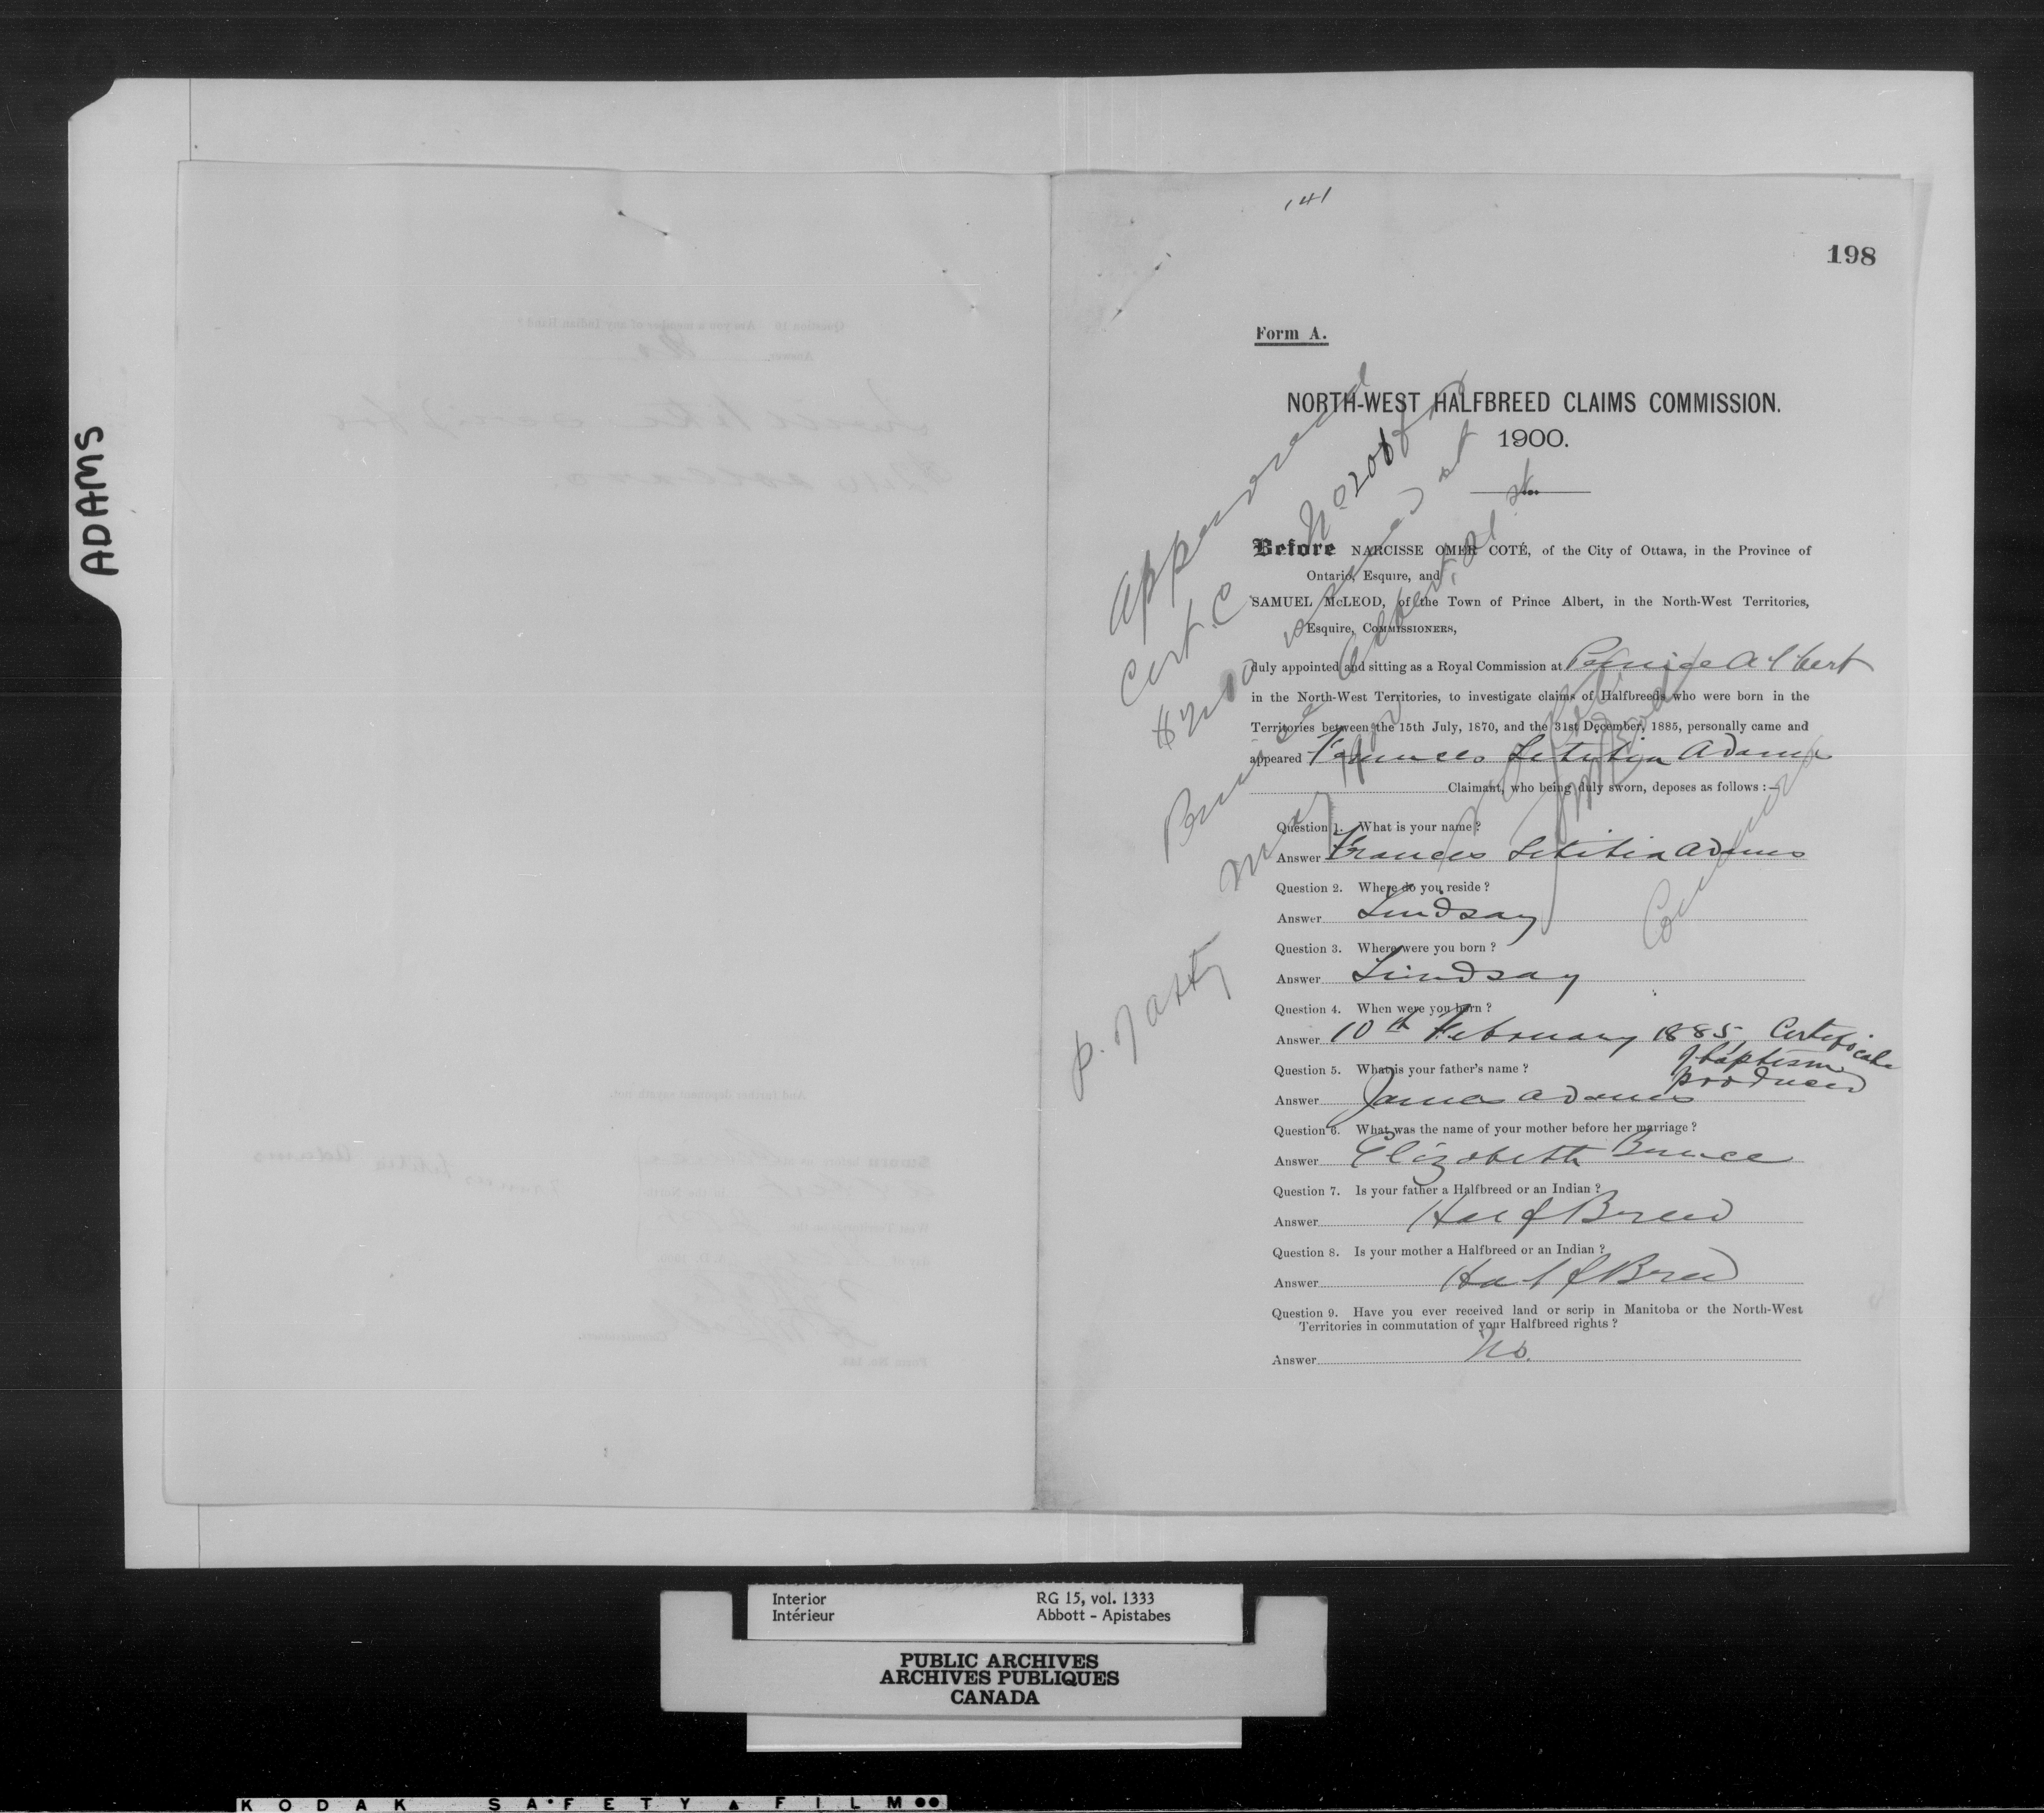 ADAMS
141
198
Form A.
NORTH-WEST HALFBREED CLAIMS COMMISSION.
1900.
Approved
Cert. C No 2006 for
$240 issued at
Prince Albert
May 1900
P. Natty
Before NARCISSE OMER COTÉ, of the City of Ottawa, in the Province of
Ontario, Esquire, and
SAMUEL McLEOD, of the Town of Prince Albert, in the North-West Territories,
Esquire, COMMISSIONERS,
duly appointed and sitting as a Royal Commission at Prince Albert
in the North-West Territories, to investigate claims of Halfbreeds who were born in the
Territories between the 15th July, 1870, and the 31st December, 1885, personally came and
appeared Frances Letitia Adams
Claimant, who being duly sworn, deposes as follows :—
Question 1. What is your name ?
Answer Frances Letitia Adams
Question 2. Where do you reside ?
Answer Lindsay
Question 3. Where were you born ?
Answer Lindsay
Question 4. When were you born ?
Answer 10th February 1885 Certificate
of baptism
produced
Question 5. What is your father's name ?
Answer James Adams
Question 6. What was the name of your mother before her marriage ?
Answer Elizabeth Bruce
Question 7. Is your father a Halfbreed or an Indian ?
Answer Half Breed
Question 8. Is your mother a Halfbreed or an Indian ?
Answer Half Breed
Question 9. Have you ever received land or scrip in Manitoba or the North-West
Territories in commutation of your Halfbreed rights ?
Answer No.
Interior
Intérieur
RG 15, vol. 1333
Abbott - Apistabes
PUBLIC ARCHIVES
ARCHIVES PUBLIQUES
CANADA
KODAK SAFETY FILM